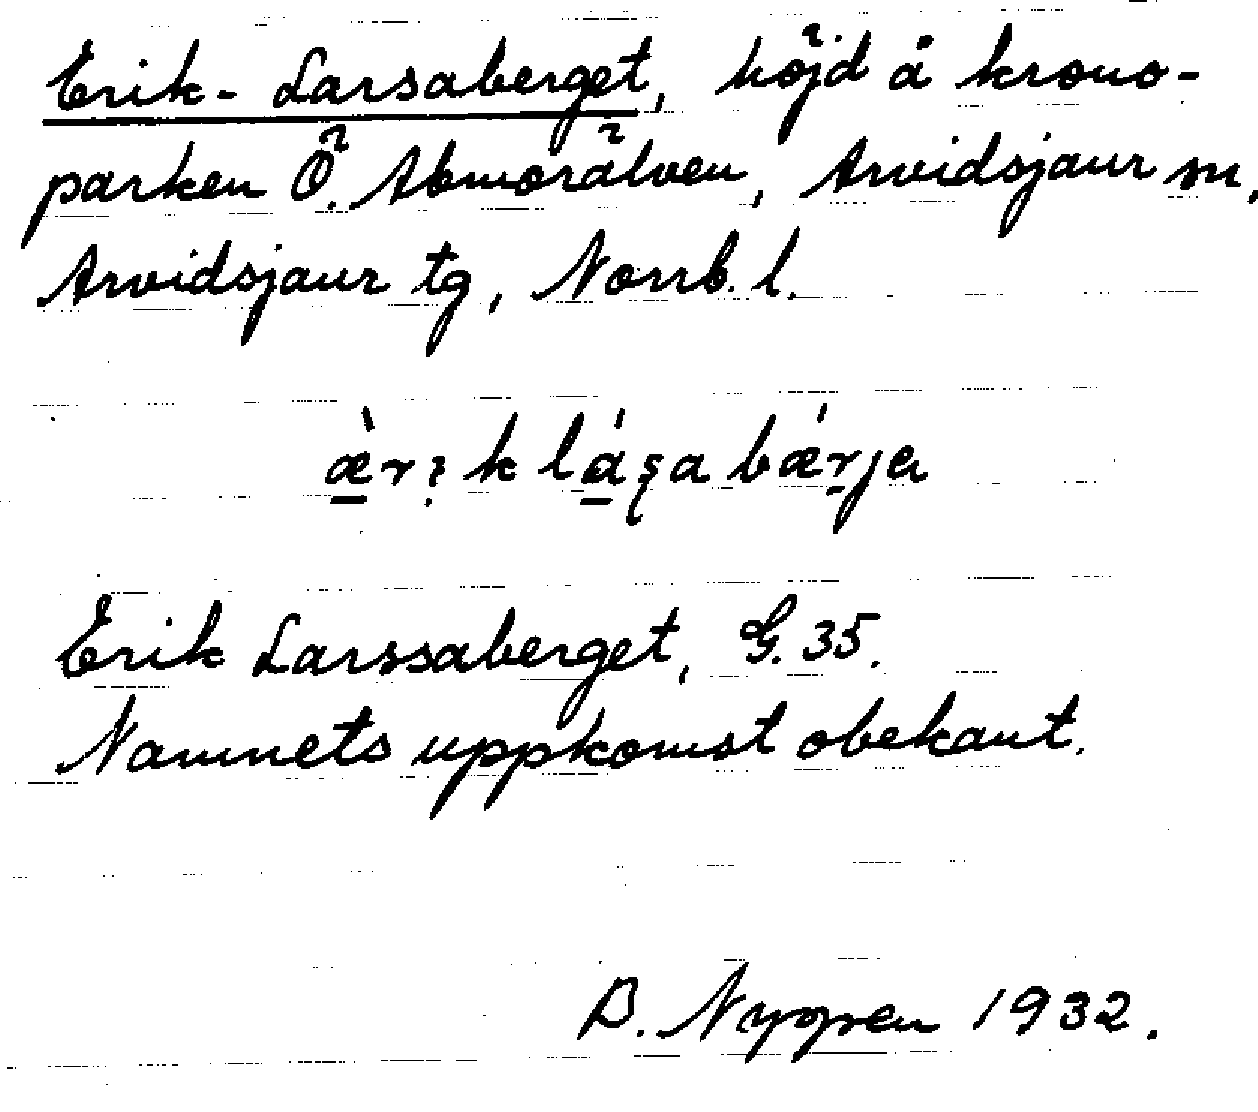 Erik-Larsaberget, höjd å krono-
parken Ö. Abmorälven, Arvidsjaur sn,
Arvidsjaur tg, Norrb. l.
Erik Larssaberget, G. 35.
Namnets uppkomst obekant.
B. Nygren 1932.